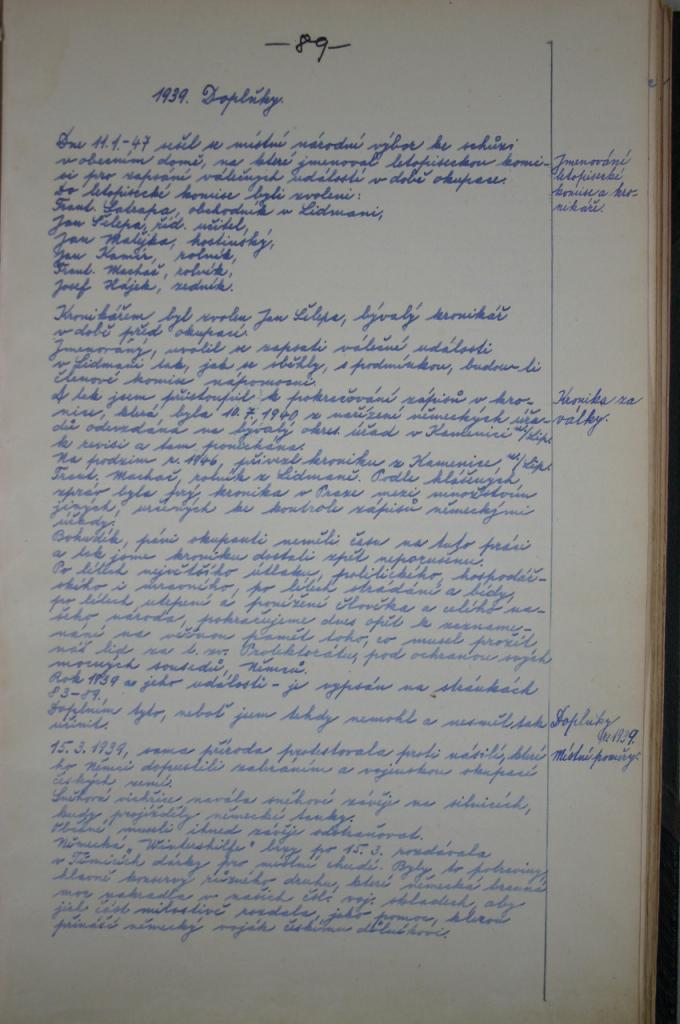 -89-
1939. Doplňky.
Dne 11.1.-47 sešel se místní národní výbor ke schůzi
v obecním domě, na které jmenoval letopiseckou komi-
si pro zapsání válečných událostí v době okupace.
Do letopisecké komise byli zvoleni:
Frant. Satrapa, obchodník v Lidmani,
Jan Šlepa, říd. učitel,
Jan Matějka, hostinský,
Jan Kamír, rolník,
Frant. Machač, rolník,
Josef Hájek, zedník.
Jmenování
letopisecké
komise a kro-
nikáře.
Kronikářem byl zvolen Jan Šlepa, bývalý kronikář
v době před okupací.
Jmenovaný, uvolil se zapsati válečné události
v Lidmani tak, jak se sběhly, s podmínkou, budou-li
členové komise nápomocni.
A tak jsem přistoupil k pokračování zápisů v kro-
nice, která byla 10.7.1940 z nařízení německých úřa-
dů odevzdána na bývalý okres. úřad v Kamenici n./Lip.
k revisi a tam ponechána.
Kronika za
války.
Na podzim r. 1946, přivezl kroniku z Kamenice n./Lip.
Frant. Machač, rolník z Lidmaně. Podle hlášených
zpráv byla prý kronika v Praze mezi množstvím
jiných, určených ke kontrole zápisů německými
úřady.
Bohudík, páni okupanti neměli času na tuto práci
a tak jsme kroniku dostali zpět neporušenu.
Po létech největšího útlaku, politického, hospodář-
ského i mravního, po létech strádání a bídy,
po létech utrpení a ponížení člověka a celého na-
šeho národa, pokračujeme dnes opět k zazname-
nání na věčnou paměť toho, co musel prožít
náš lid za t. zv. Protektorátu, pod ochranou svých
mocných sousedů, Němců.
Rok 1939 a jeho události - je vypsán na stránkách
83-89.
Doplním tyto, neboť jsem tehdy nemohl a nesměl, tak
učinit.
Doplňky
k r. 1939.
Místní poměry.
15.3.1939, sama příroda protestovala proti násilí, které-
ho Němci dopustili zabráním a vojenskou okupací
českých zemí.
Sněhová vichřice navála sněhové závěje na silnicích,
kudy projížděly německé tanky.
Občané museli ihned závěje odstraňovat.
Německá "Winterhilfe" brzy po 15.3. rozdávala
v Těmicích dárky pro místní chudé. Byly to potraviny,
hlavně konservy různého druhu, které německá branná
moc nakradla v našich čsl. voj. skladech, aby
jich část milostivě rozdala, jako pomoc, kterou
přináší německý voják českému dělníkovi.